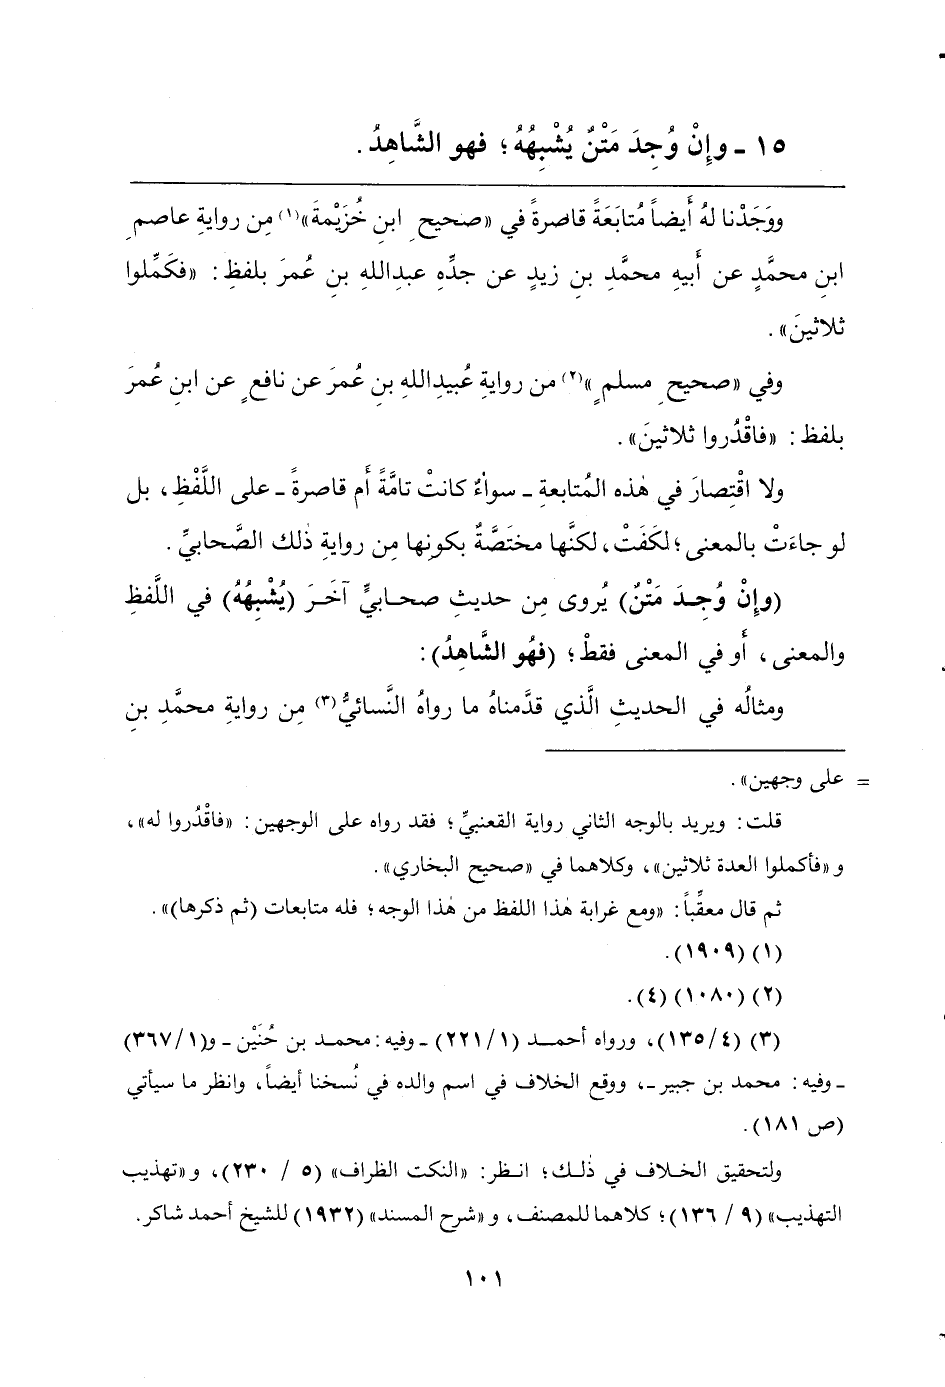 ١٥ ـ وإِنْ وُجِدَ مَتْنٌ يُشْبِهُهُ؛ فهو الشَّاهِدُ.
ووَجَدْنا لهُ أَيضاً مُتابَعَةً قاصرةً في «صحيحِ ابنِ خُزَيْمةَ»(١) مِن روايةِ عاصمِ
ابنِ محمَّدٍ عن أَبيهِ محمَّدِ بنِ زيدٍ عن جدِّهِ عبدِاللهِ بنِ عُمرَ بلفظِ: «فكَمِّلوا
ثلاثينَ».
وفي «صحيحِ مسلمٍ»(٢) من روايةِ عُبيدِاللهِ بنِ عُمرَ عن نافعٍ عن ابنِ عُمرَ
بلفظ: «فاقْدُروا ثلاثينَ».
ولا اقْتِصارَ في هٰذه المُتابعةِ ـ سواءٌ كانتْ تامَّةً أَم قاصرةً ـ على اللَّفْظِ، بل
لو جاءَتْ بالمعنى؛ لكَفَتْ، لكنَّها مختَصَّةٌ بكونِها مِن روايةِ ذٰلك الصَّحابيِّ.
(وإِنْ وُجِدَ مَتْنٌ) يُروى مِن حديثِ صحابيٍّ آخَرَ (يُشْبِهُهُ) في اللَّفظِ
والمعنى، أَو في المعنى فقطْ؛ (فهُو الشَّاهِدُ):
ومثالُه في الحديثِ الَّذي قدَّمناهُ ما رواهُ النَّسائيُّ(٣) مِن روايةِ محمَّدِ بنِ
= على وجهين».
قلت: ويريد بالوجه الثاني رواية القعنبيِّ؛ فقد رواه على الوجهين: «فاقْدُروا له»،
و«فأكملوا العدة ثلاثين»، وكلاهما في «صحيح البخاري».
ثم قال معقِّباً: «ومع غرابة هٰذا اللفظ من هٰذا الوجه؛ فله متابعات (ثم ذكرها)».
(١) (١٩٠٩).
(٢) (١٠٨٠) (٤).
(٣) (٤/١٣٥)، ورواه أحمد (١/٢٢١) ـ وفيه: محمد بن حُنَيْن ـ و(١/٣٦٧)
ـ وفيه: محمد بن جبير ـ، ووقع الخلاف في اسم والده في نُسخنا أيضاً، وانظر ما سيأتي
(ص ١٨١).
ولتحقيق الخلاف في ذٰلك؛ انظر: «النكت الظراف» (٥ / ٢٣٠)، و«تهذيب
التهذيب» (٩ / ١٣٦)؛ كلاهما للمصنف، و«شرح المسند» (١٩٣٢) للشيخ أحمد شاكر.
١٠١